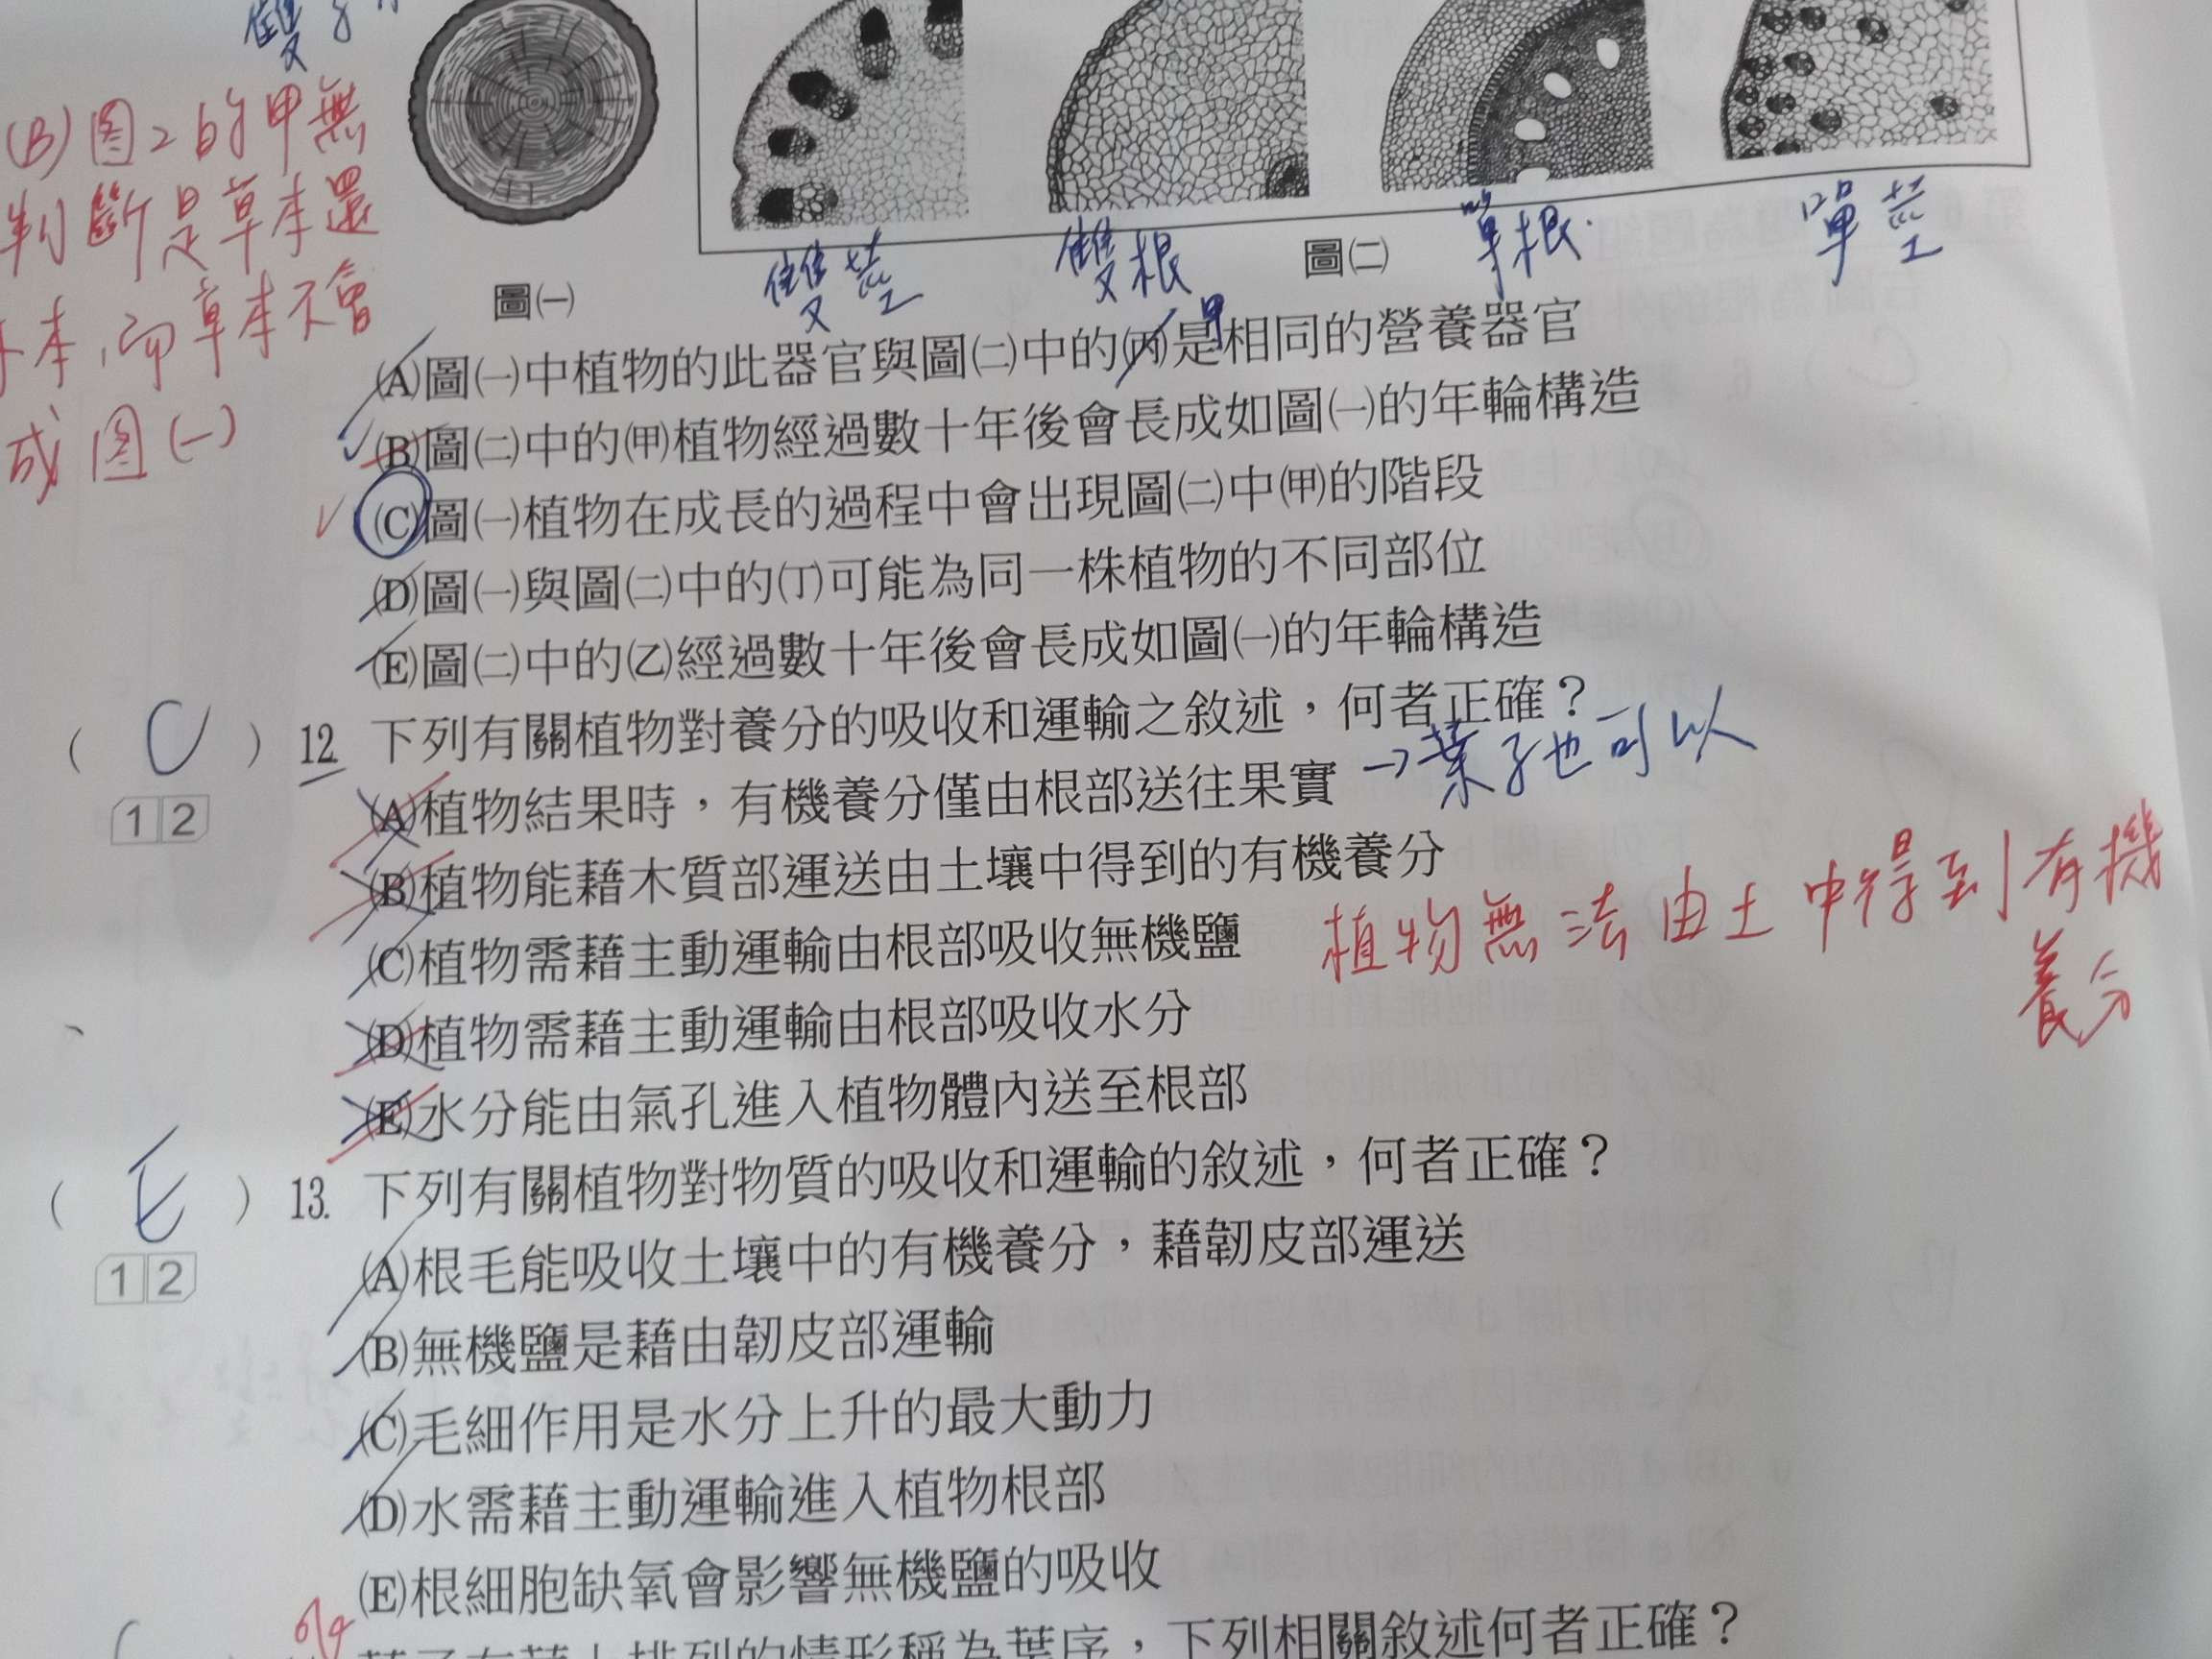 (B)圖2的甲無
判斷是草本還
木本,而草本不會
成圖(一)
雙莖
雙根
單根
單莖
圖㈠
圖㈡
甲
(A)圖㈠中植物的此器官與圖㈡中的㈛是相同的營養器官
(B)圖㈡中的㈙植物經過數十年後會長成如圖㈠的年輪構造
(C)圖㈠植物在成長的過程中會出現圖㈡中㈙的階段
(D)圖㈠與圖㈡中的㈜可能為同一株植物的不同部位
(E)圖㈡中的㈚經過數十年後會長成如圖㈠的年輪構造
( C ) 12. 下列有關植物對養分的吸收和運輸之敘述,何者正確?
1 2
(A)植物結果時,有機養分僅由根部送往果實 →葉子也可以
(B)植物能藉木質部運送由土壤中得到的有機養分
植物無法由土中得到有機
養分
(C)植物需藉主動運輸由根部吸收無機鹽
(D)植物需藉主動運輸由根部吸收水分
(E)水分能由氣孔進入植物體內送至根部
( E ) 13. 下列有關植物對物質的吸收和運輸的敘述,何者正確?
1 2
(A)根毛能吸收土壤中的有機養分,藉韌皮部運送
(B)無機鹽是藉由韌皮部運輸
(C)毛細作用是水分上升的最大動力
(D)水需藉主動運輸進入植物根部
(E)根細胞缺氧會影響無機鹽的吸收
葉子在莖上排列的情形稱為葉序,下列相關敘述何者正確?